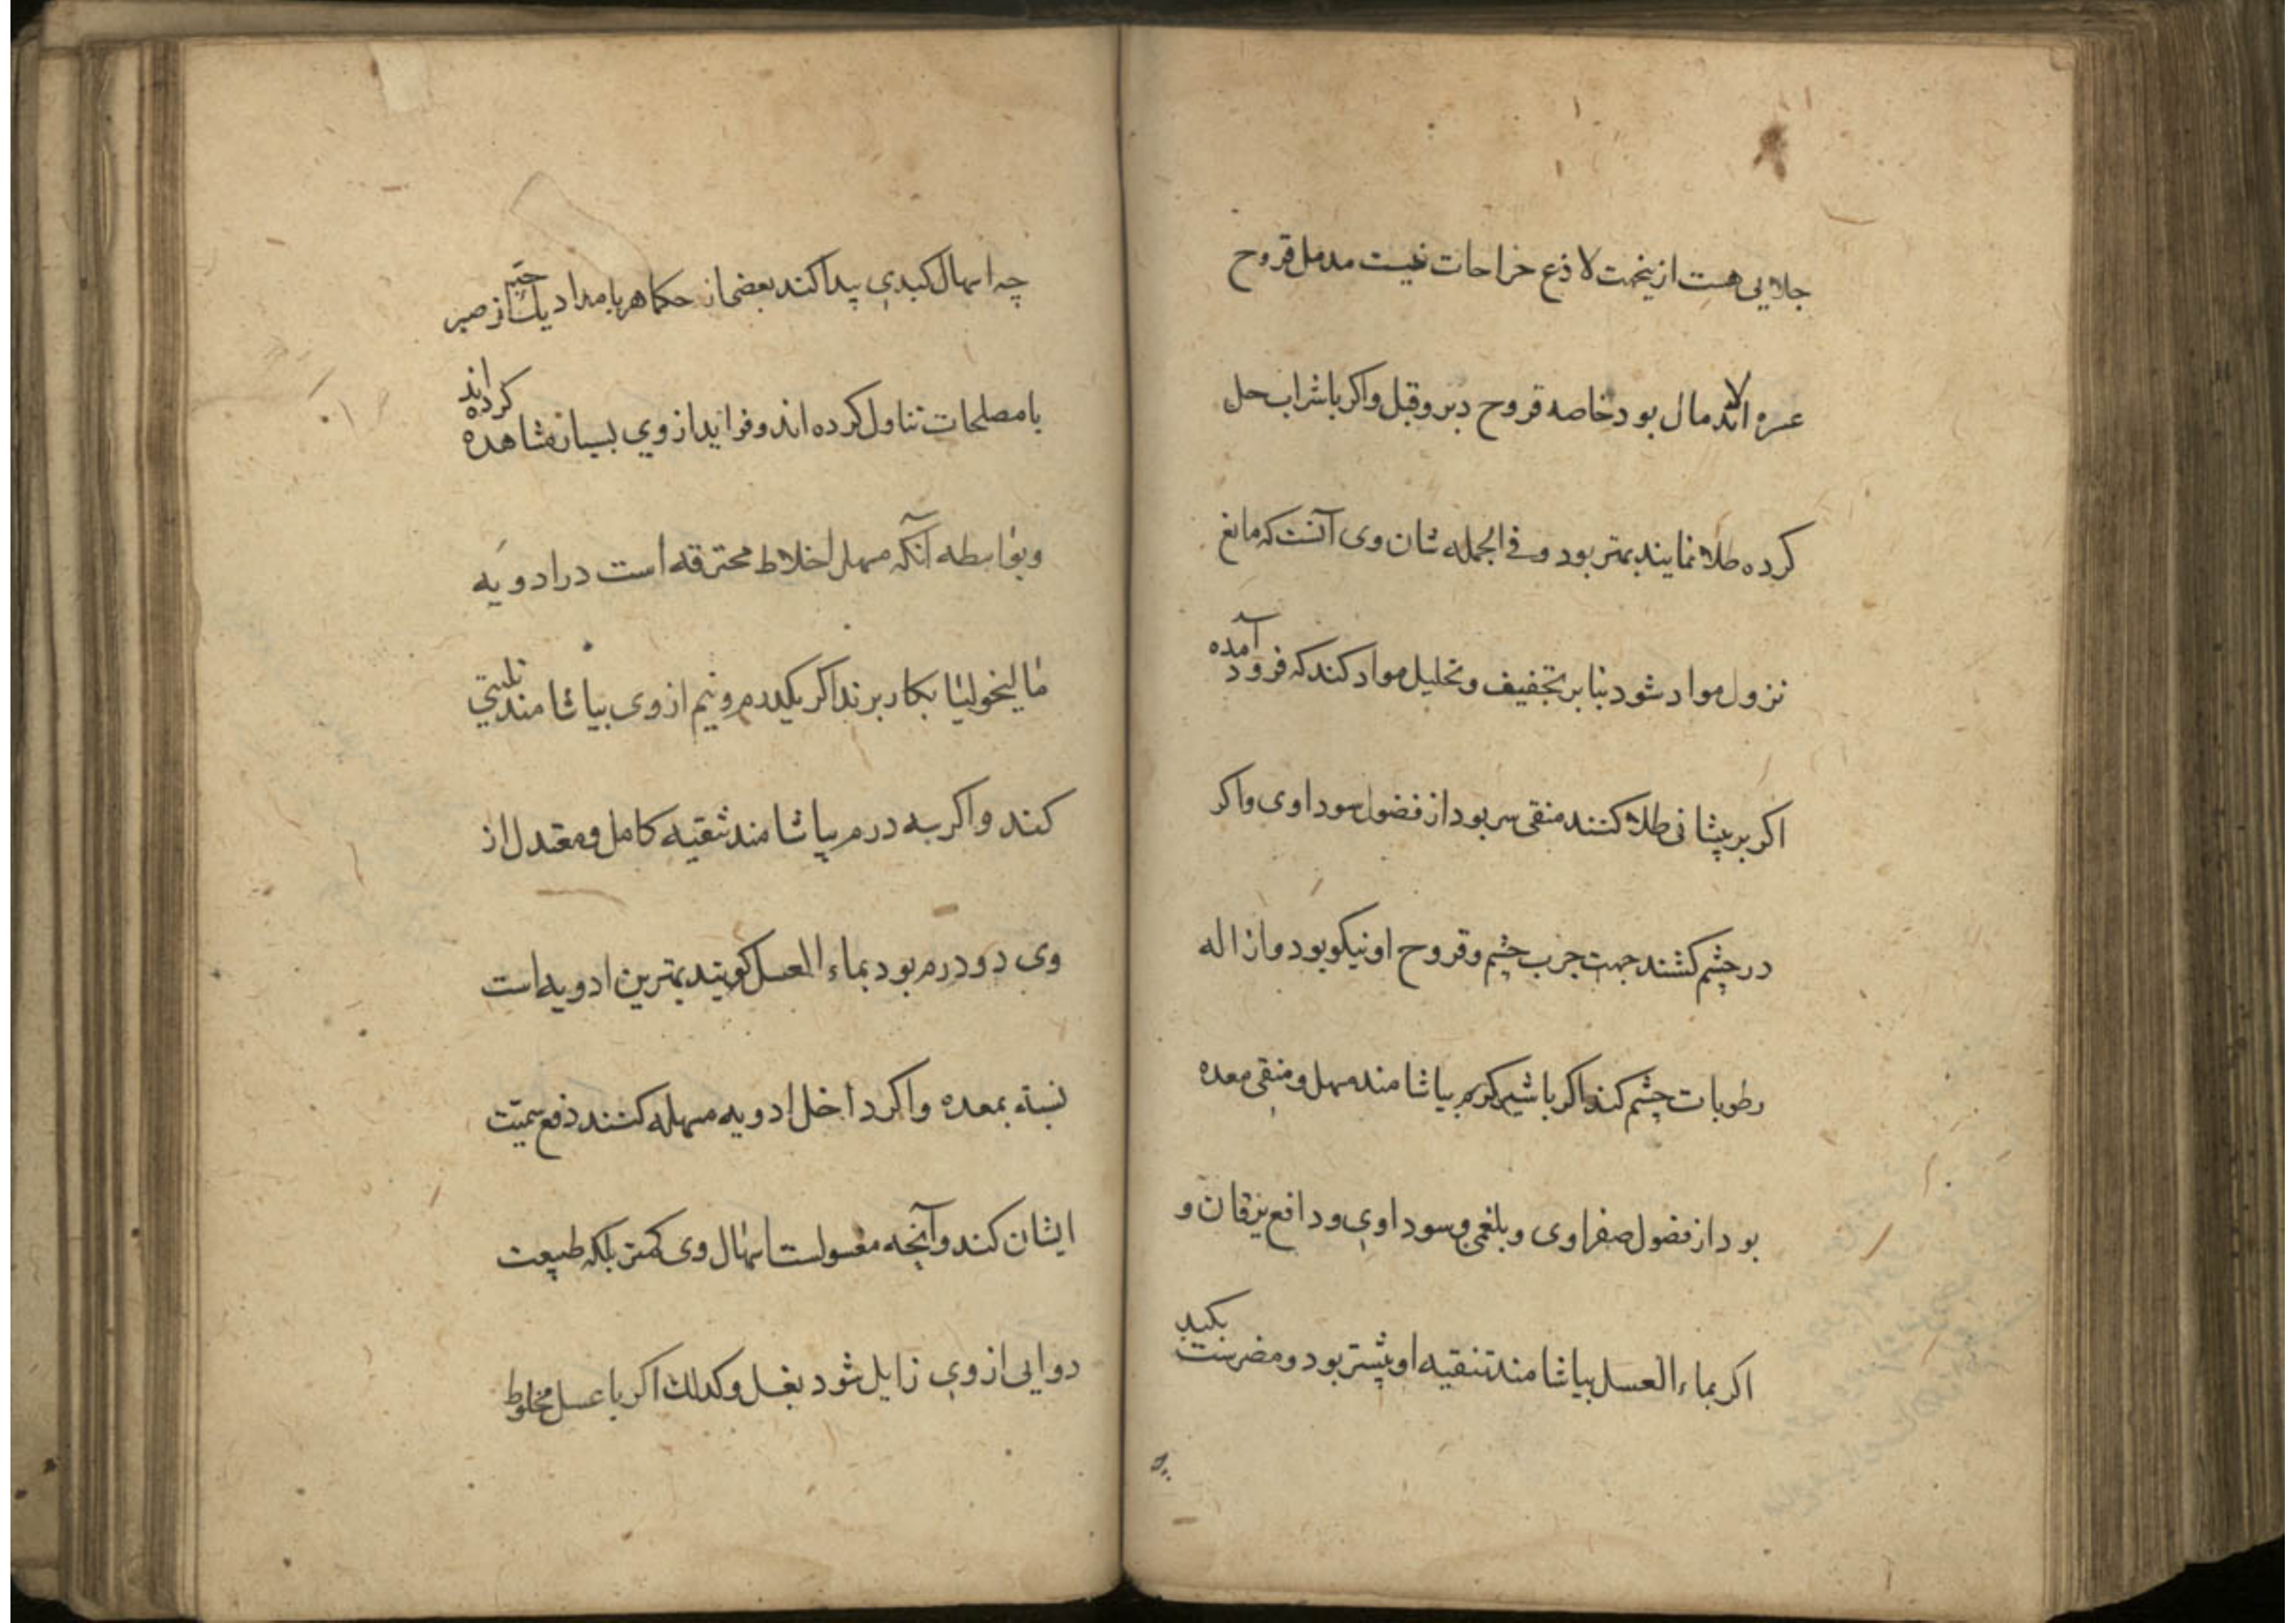 جلایی هست ازینجهت لاذع خراحات نیست مدمل قروح
عسره الاندمال بود خاصه قروح دبر وقبل واکر باشراب حل
کرده طلا نمایند بهتر بود وفی الجمله شان وی آنست که مانع
نزول مواد شود بنا بر تجفیف وتحلیل مواد کند که فرود آمده
اکر بر پیشانی طلا کنند منقی سر بود از فضول سوداوی واکر
در چشم کشند جهت جرب چشم وقروح او نیکو بود وازاله
رطوبات چشم کند واکر باشیر کرم بیاشامند مسهل ومنقی معده
بود از فضول صفراوی وبلغمی وسوداوی ودافع یرقان و
اکر بماء العسل بیاشامند تنقیه او بیشتر بود ومضرتست بکبد
چه اسهال کبدی پیدا کند بعضی از حکما هر بامداد یک حبه از صبر
بامصلحات تناول کرده اند وفواید از وی بسیار مشاهده کرده اند
وبواسطه آنکه مسهل اخلاط محترقه است در ادویه
مالیخولیا بکار برند اکر یکدرم ونیم از وی بیاشامند تلیینی
کند واکر سه درم بیاشامند تنقیه کامل ومعتدل از
وی دو درم بود بماء العسل کویند بهترین ادویه است
نسبة بمعده واکر داخل ادویه مسهله کنند دفع سمیت
ایشان کند وآنچه مغسولست اسهال وی کمتر بلکه طبیعت
دوایی از وی زایل شود بغسل وکذلک اکر باعسل مخلوط